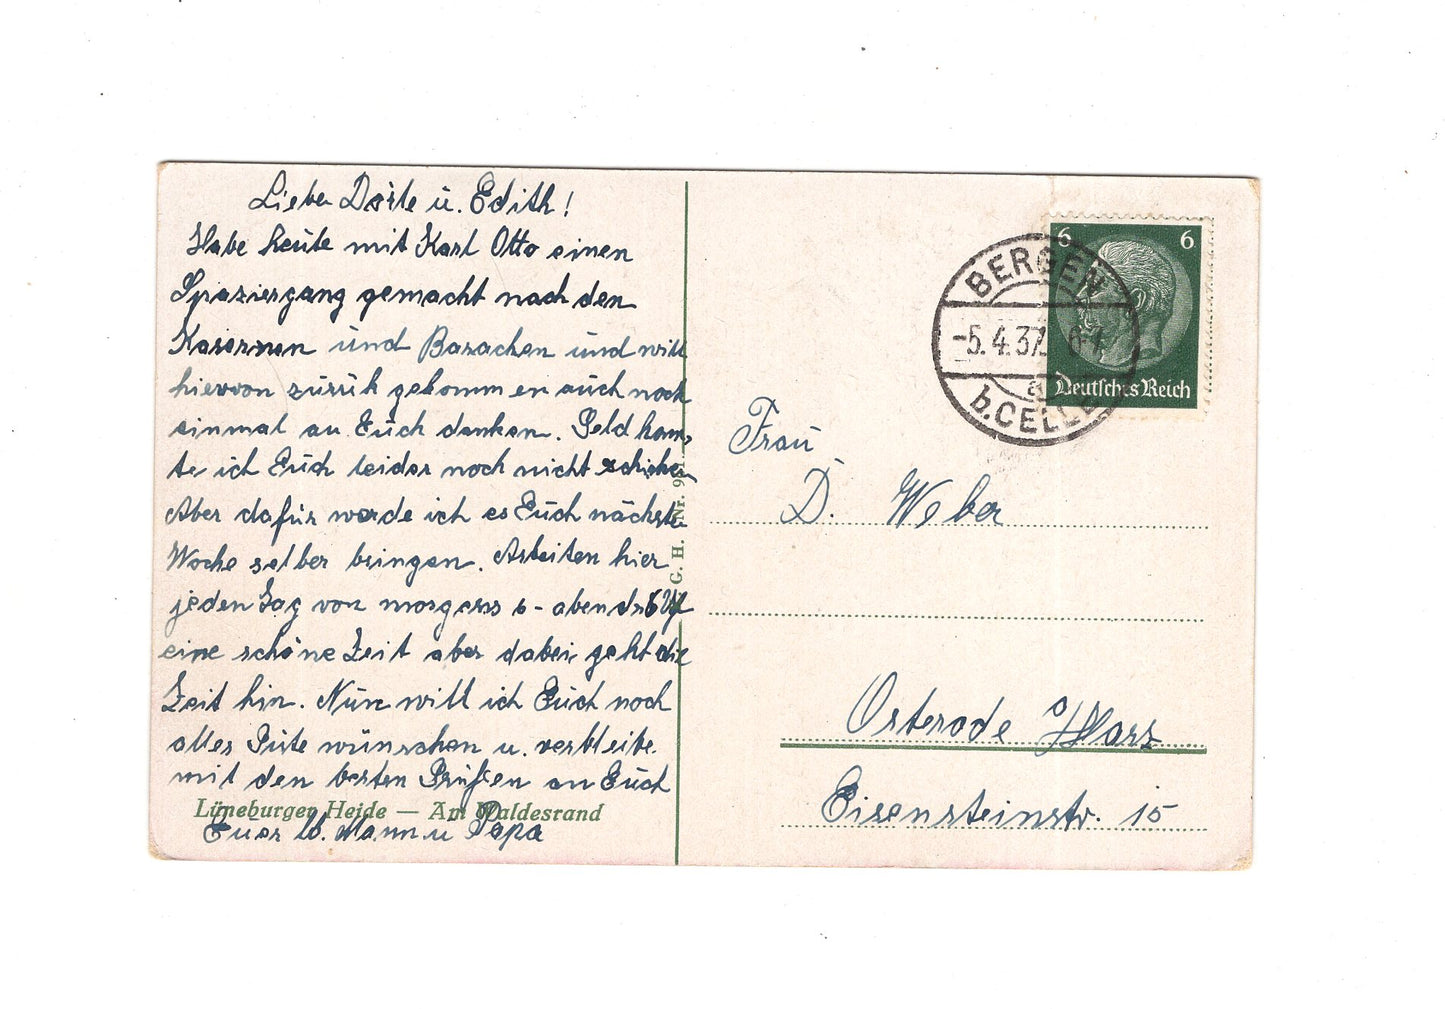 Liebe Dörte u. Edith!
Habe heute mit Karl Otto einen
Spaziergang gemacht nach den
Kasernen und Baracken und will
hiervon zurück gekommen auch noch
einmal an Euch denken. Geld konn-
te ich Euch leider noch nicht schicken
Aber dafür werde ich es Euch nächste
Woche selber bringen. Arbeiten hier
jeden Tag von morgens 6 - abends 6 Uhr
eine schöne Zeit aber dabei geht die
Zeit hin. Nun will ich Euch noch
alles Gute wünschen u. verbleibe
mit den besten Grüßen an Euch
Euer lb. Mann u Papa
Lüneburger Heide — Am Waldesrand
G. H. Nr.
6 6
Deutsches Reich
BERGEN
-5.4.37. 6-7
a
b. CELLE
Frau
D. Weber
Osterode a/Harz
Eisensteinstr. 15